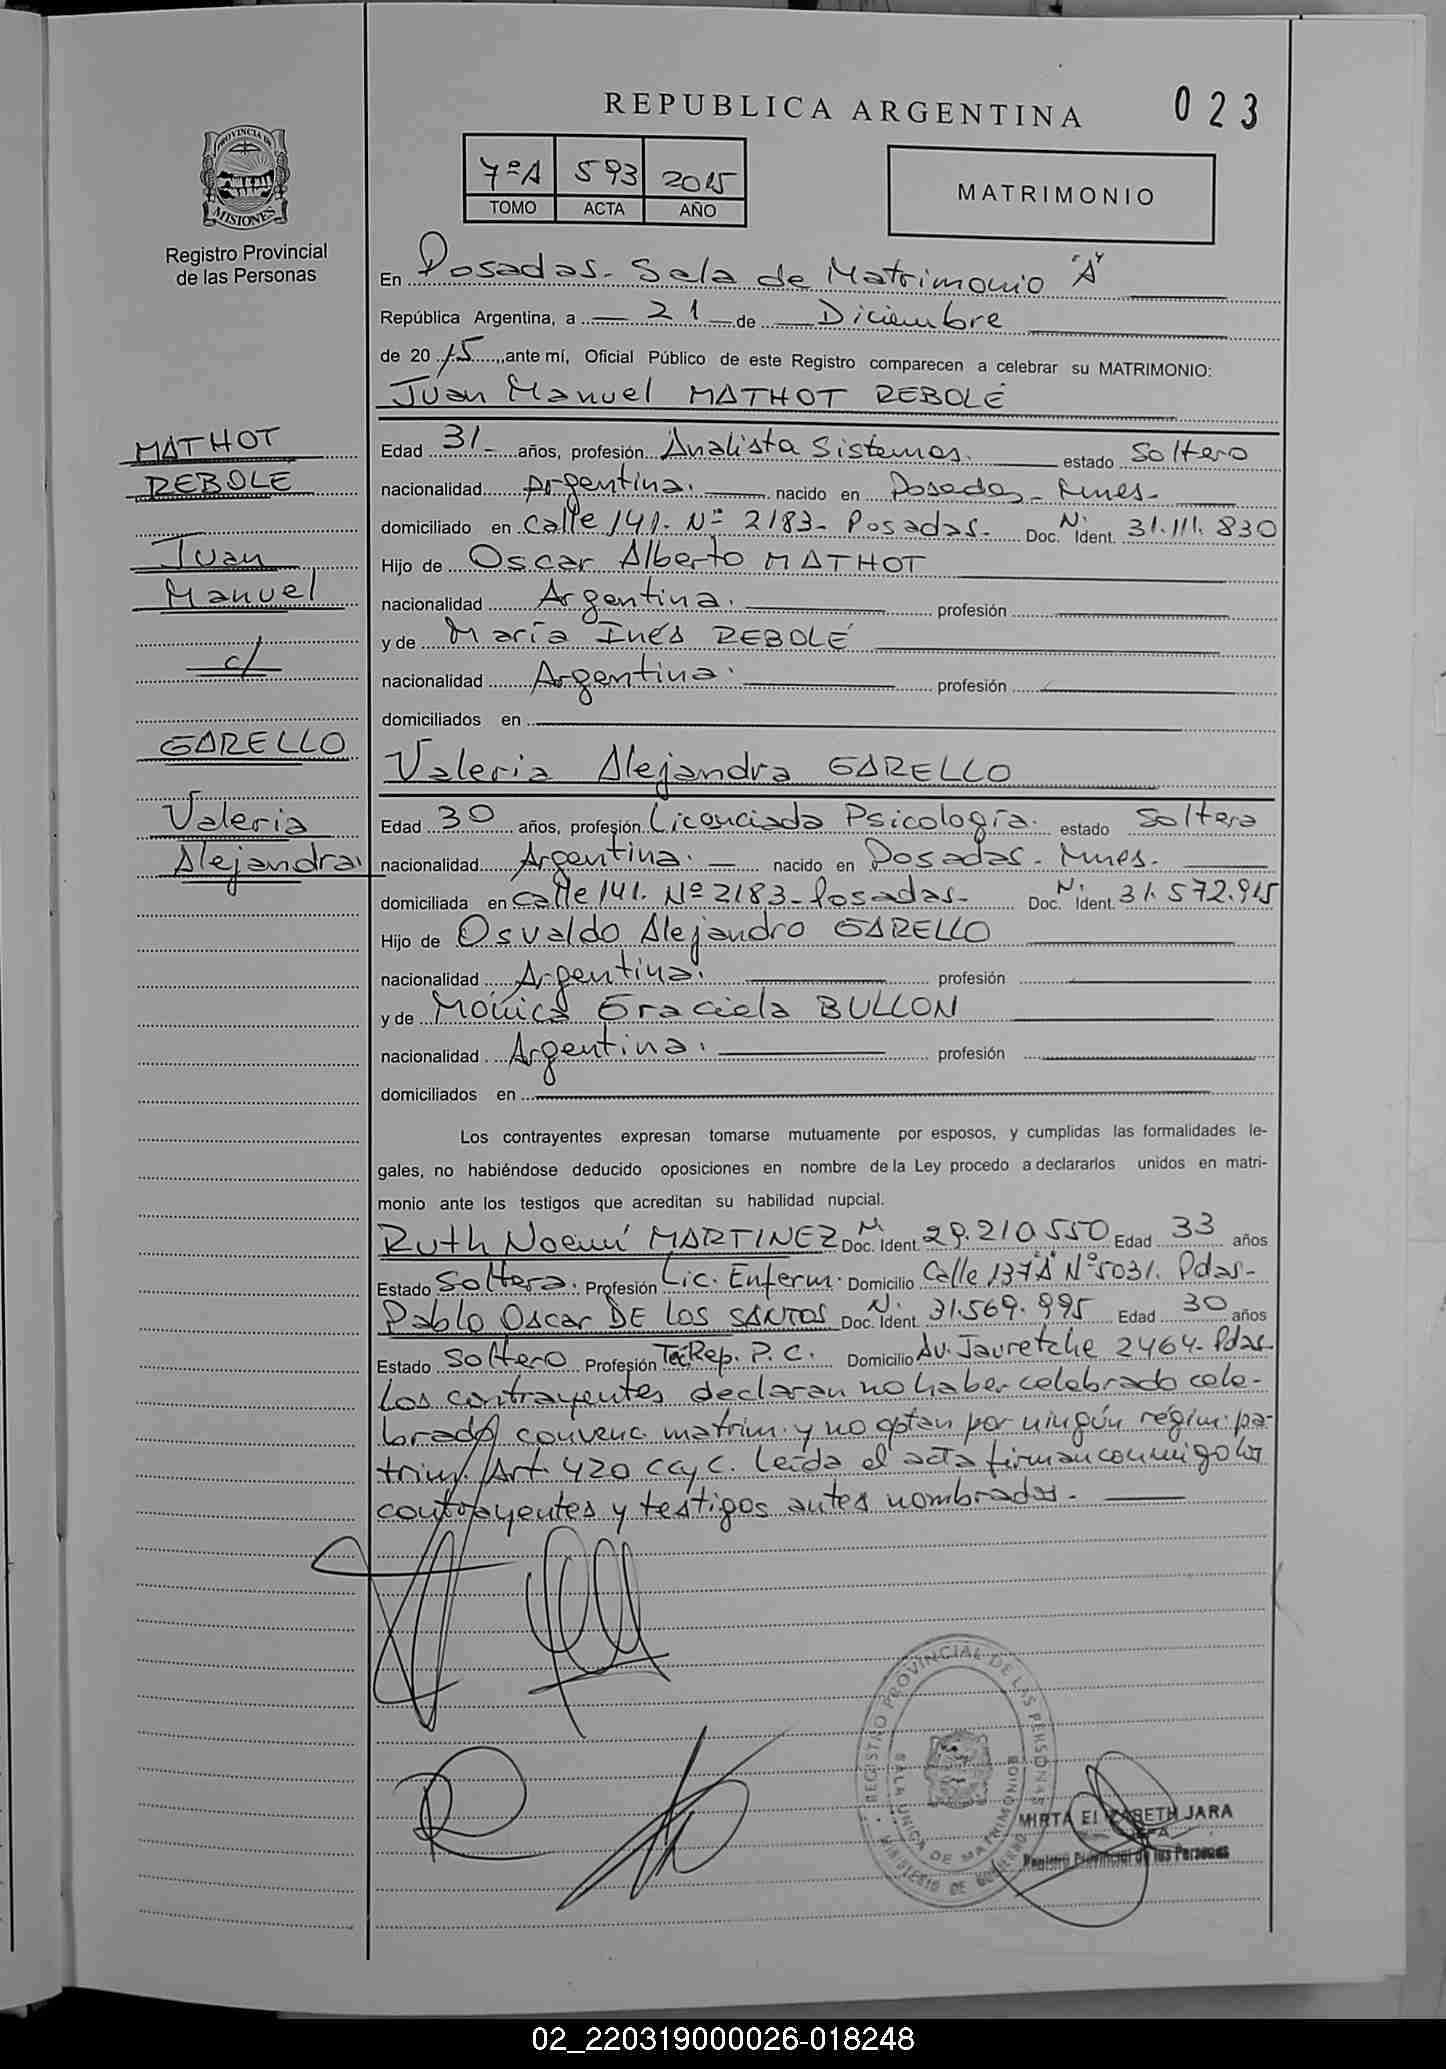 REPUBLICA ARGENTINA
023
PROVINCIA DE
MISIONES
Registro Provincial
de las Personas
7ºA 593 2015
TOMO ACTA AÑO
MATRIMONIO
En Posadas. Sala de Matrimonio "A"
República Argentina, a 21 de Diciembre
de 2015, ante mí, Oficial Público de este Registro comparecen a celebrar su MATRIMONIO:
Juan Manuel MATHOT REBOLÉ
MATHOT
REBOLE
Juan
Manuel
c/
GARELLO
Valeria
Alejandra.
Edad 31 años, profesión Analista Sistemas. estado Soltero
nacionalidad Argentina. nacido en Posadas - Mnes-
domiciliado en Calle 141. Nº 2183- Posadas- Doc. N. Ident. 31.111.830
Hijo de Oscar Alberto MATHOT
nacionalidad Argentina. profesión
y de María Inés REBOLÉ
nacionalidad Argentina. profesión
domiciliados en
Valeria Alejandra GARELLO
Edad 30 años, profesión Licenciada Psicología. estado Soltera
nacionalidad Argentina. nacido en Posadas - Mnes.
domiciliada en Calle 141. Nº 2183- Posadas- Doc. N. Ident. 31.572.915
Hijo de Osvaldo Alejandro GARELLO
nacionalidad Argentina. profesión
y de Mónica Graciela BULLON
nacionalidad Argentina. profesión
domiciliados en
Los contrayentes expresan tomarse mutuamente por esposos, y cumplidas las formalidades le-
gales, no habiéndose deducido oposiciones en nombre de la Ley procedo a declararlos unidos en matri-
monio ante los testigos que acreditan su habilidad nupcial.
Ruth Noemí MARTINEZ Doc. N. Ident. 29.210.550 Edad 33 años
Estado Soltera. Profesión Lic. Enferm. Domicilio Calle 137"A" Nº5031. Pdas-
Pablo Oscar DE LOS SANTOS Doc. N. Ident. 31.569.995 Edad 30 años
Estado Soltero Profesión Tec. Rep. P. C. Domicilio Av. Jauretche 2464- Pdas-
Los contrayentes declaran no haber celebrado cele-
brado convenc. matrim. y no optan por ningún régim. pa-
trim. Art. 420 CCyC. Leída el acta firman conmigo los
contrayentes y testigos antes nombrados.-
REGISTRO PROVINCIAL DE LAS PERSONAS
SALA UNICA DE MATRIMONIOS
MINISTERIO DE GOBIERNO
MIRTA ELIZABETH JARA
JEFA
Registro Provincial de las Personas
02_220319000026-018248